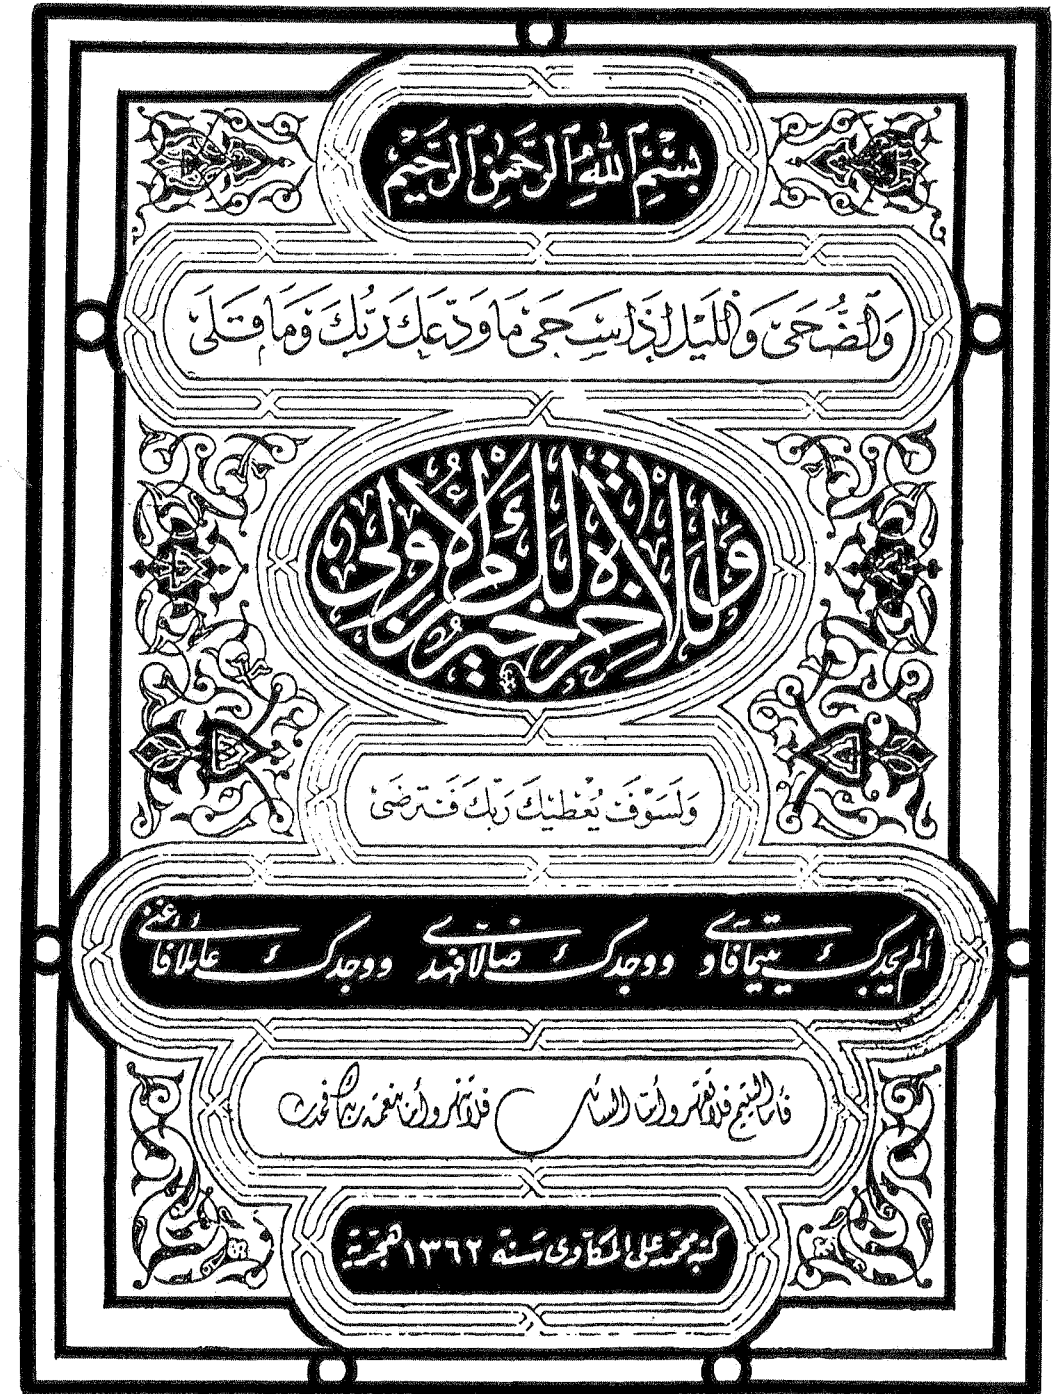 بِسْمِ اللهِ الرَّحْمٰنِ الرَّحِيْمِ
وَالضُّحَىٰ وَاللَّيْلِ إِذَا سَجَىٰ مَا وَدَّعَكَ رَبُّكَ وَمَا قَلَىٰ
وَلَلْآخِرَةُ خَيْرٌ لَكَ مِنَ الْأُولَى
وَلَسَوْفَ يُعْطِيْكَ رَبُّكَ فَتَرْضَىٰ
ألم يجدك يتيما فآوى ووجدك ضالا فهدى ووجدك عائلا فأغنى
فأما اليتيم فلا تقهر وأما السائل فلا تنهر وأما بنعمة ربك فحدث
كتبه محمد علي المكاوي سنة ١٣٦٢ هجرية